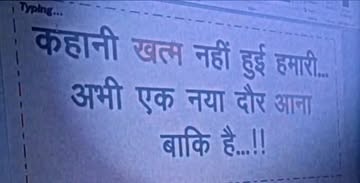 Typing...
कहानी खत्म नहीं हुई हमारी...
अभी एक नया दौर आना
बाकि है...!!